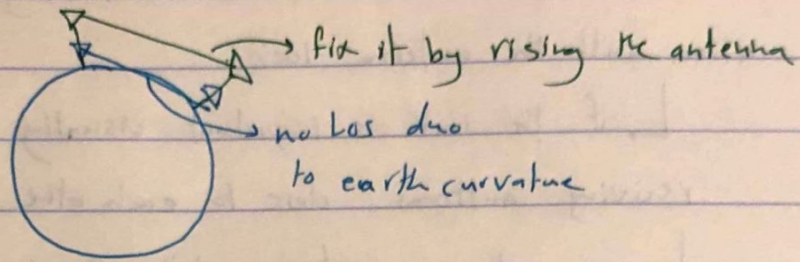 fix it by rising the antenna
no Los duo
to earth curvature